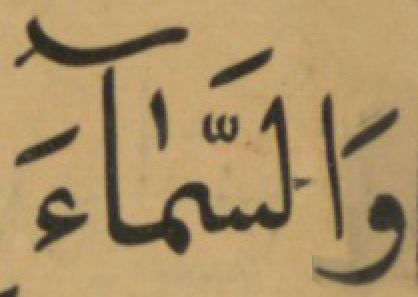 وَالسَّمَٰآءَ